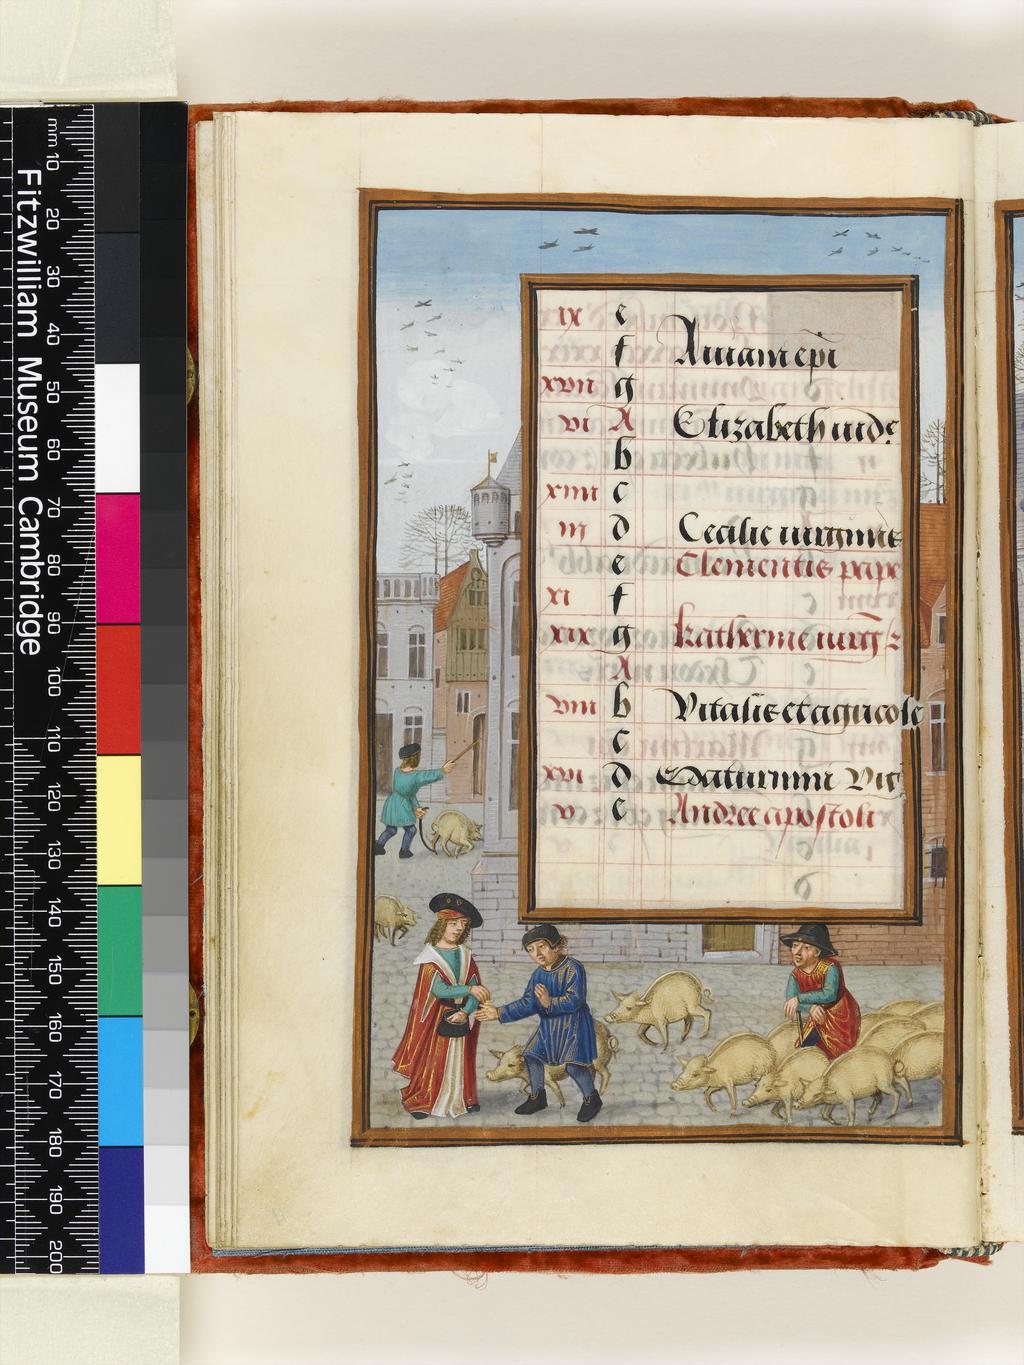 Fitzwilliam Museum Cambridge
mm 10 20 30 40 50 60 70 80 90 100 110 120 130 140 150 160 170 180 190 200
ix e
f Aniani epi
xvii g
vi A Elizabeth vide
b
xiiii c
iii d Cecilie virginis
e Clementis pape
xi f
xix g Katherine virg
A
viii b Vitalis et agricole
c
xvi d Saturnini
v e Andree apostoli